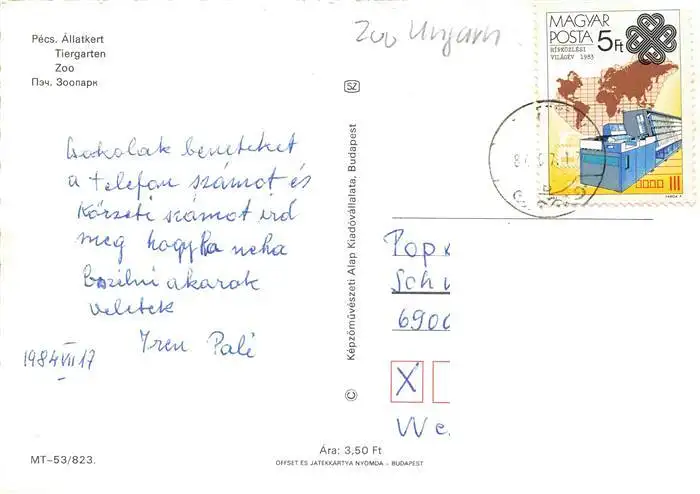 Pécs. Állatkert
Tiergarten
Zoo
Пэч. Зоопарк
Zoo Ungarn
MAGYAR
POSTA 5Ft
HIRKÖZLÉSI
VILÁGÉV 1983
Csokolak beneteket
a telefon számot és
Körzeti számot ird
meg hogyha neha
beszilni akarok
veletek
Iren Palé
1984 VII 17
SZ
© Képzőművészeti Alap Kiadóvállalata, Budapest
Pop
Sch
6900
X
We
Ára: 3,50 Ft
MT–53/823.
OFFSET ÉS JÁTÉKKÁRTYA NYOMDA – BUDAPEST